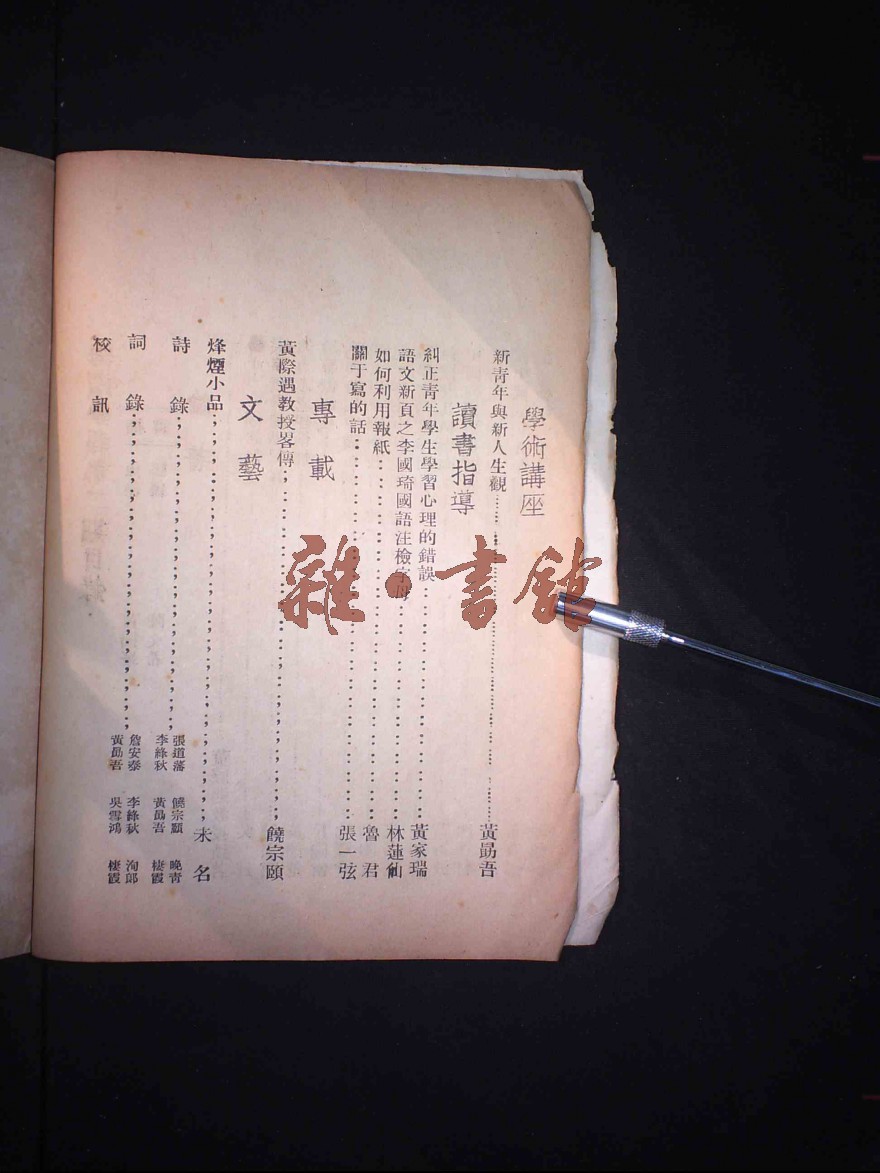 學術講座
新青年與新人生觀……黃勗吾
讀書指導
糾正青年學生學習心理的錯誤……黃家瑞
語文新頁之李國琦國語注檢字……林蓮仙
如何利用報紙……魯君
關于寫的話……張一弦
專載
黃際遇教授畧傳……饒宗頤
文藝
烽煙小品……未名
詩錄……張道藩 饒宗頤 晚青
李綘秋 黃勗吾 棲霞
詞錄……詹安泰 李綘秋 洵郎
黃勗吾 吳雪鴻 棲霞
校訊
雜·書館